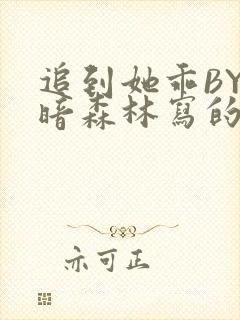 追到她乖BY
暗森林寫的
亦可正